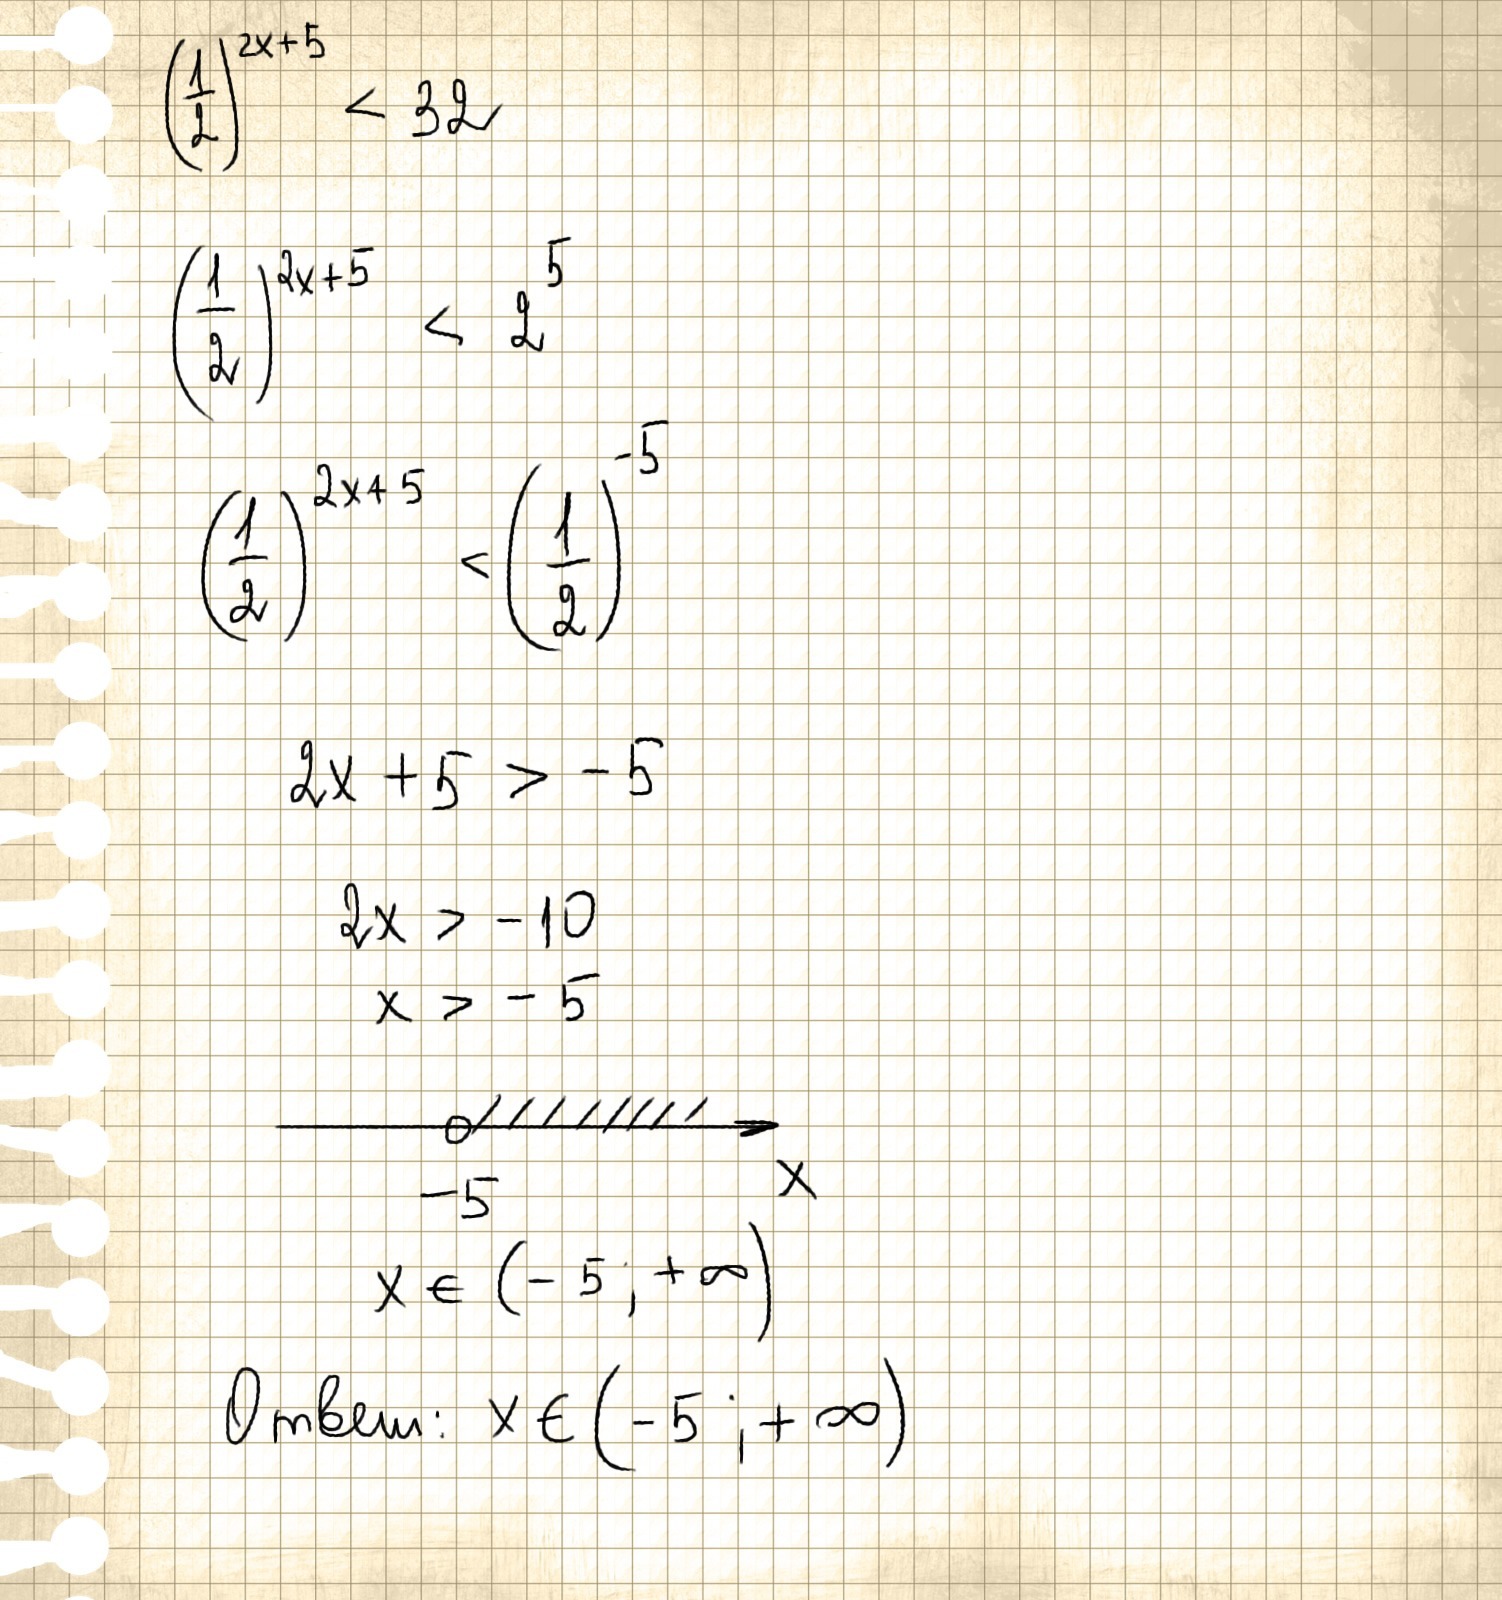 (1/2)^2x+5 < 32
(1/2)^2x+5 < 2^5
(1/2)^2x+5 < (1/2)^-5
2x + 5 > -5
2x > -10
x > -5
-5 x
x ∈ (-5; +∞)
Ответ: x ∈ (-5; +∞)